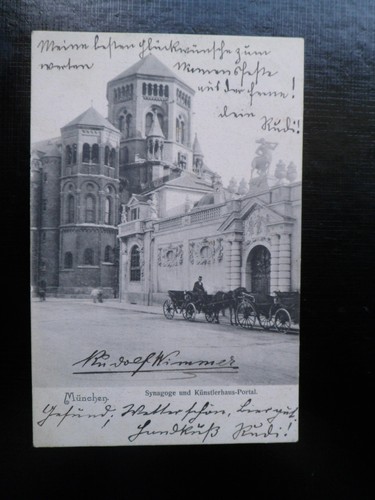 Meine besten Glückwünsche zum
werten Namensfeste
aus der Ferne!
dein
Rudi!
Rudolf Wimmer
München. Synagoge und Künstlerhaus-Portal.
Gesund; Wetter schön, Bier gut.
Handkuß Rudi!